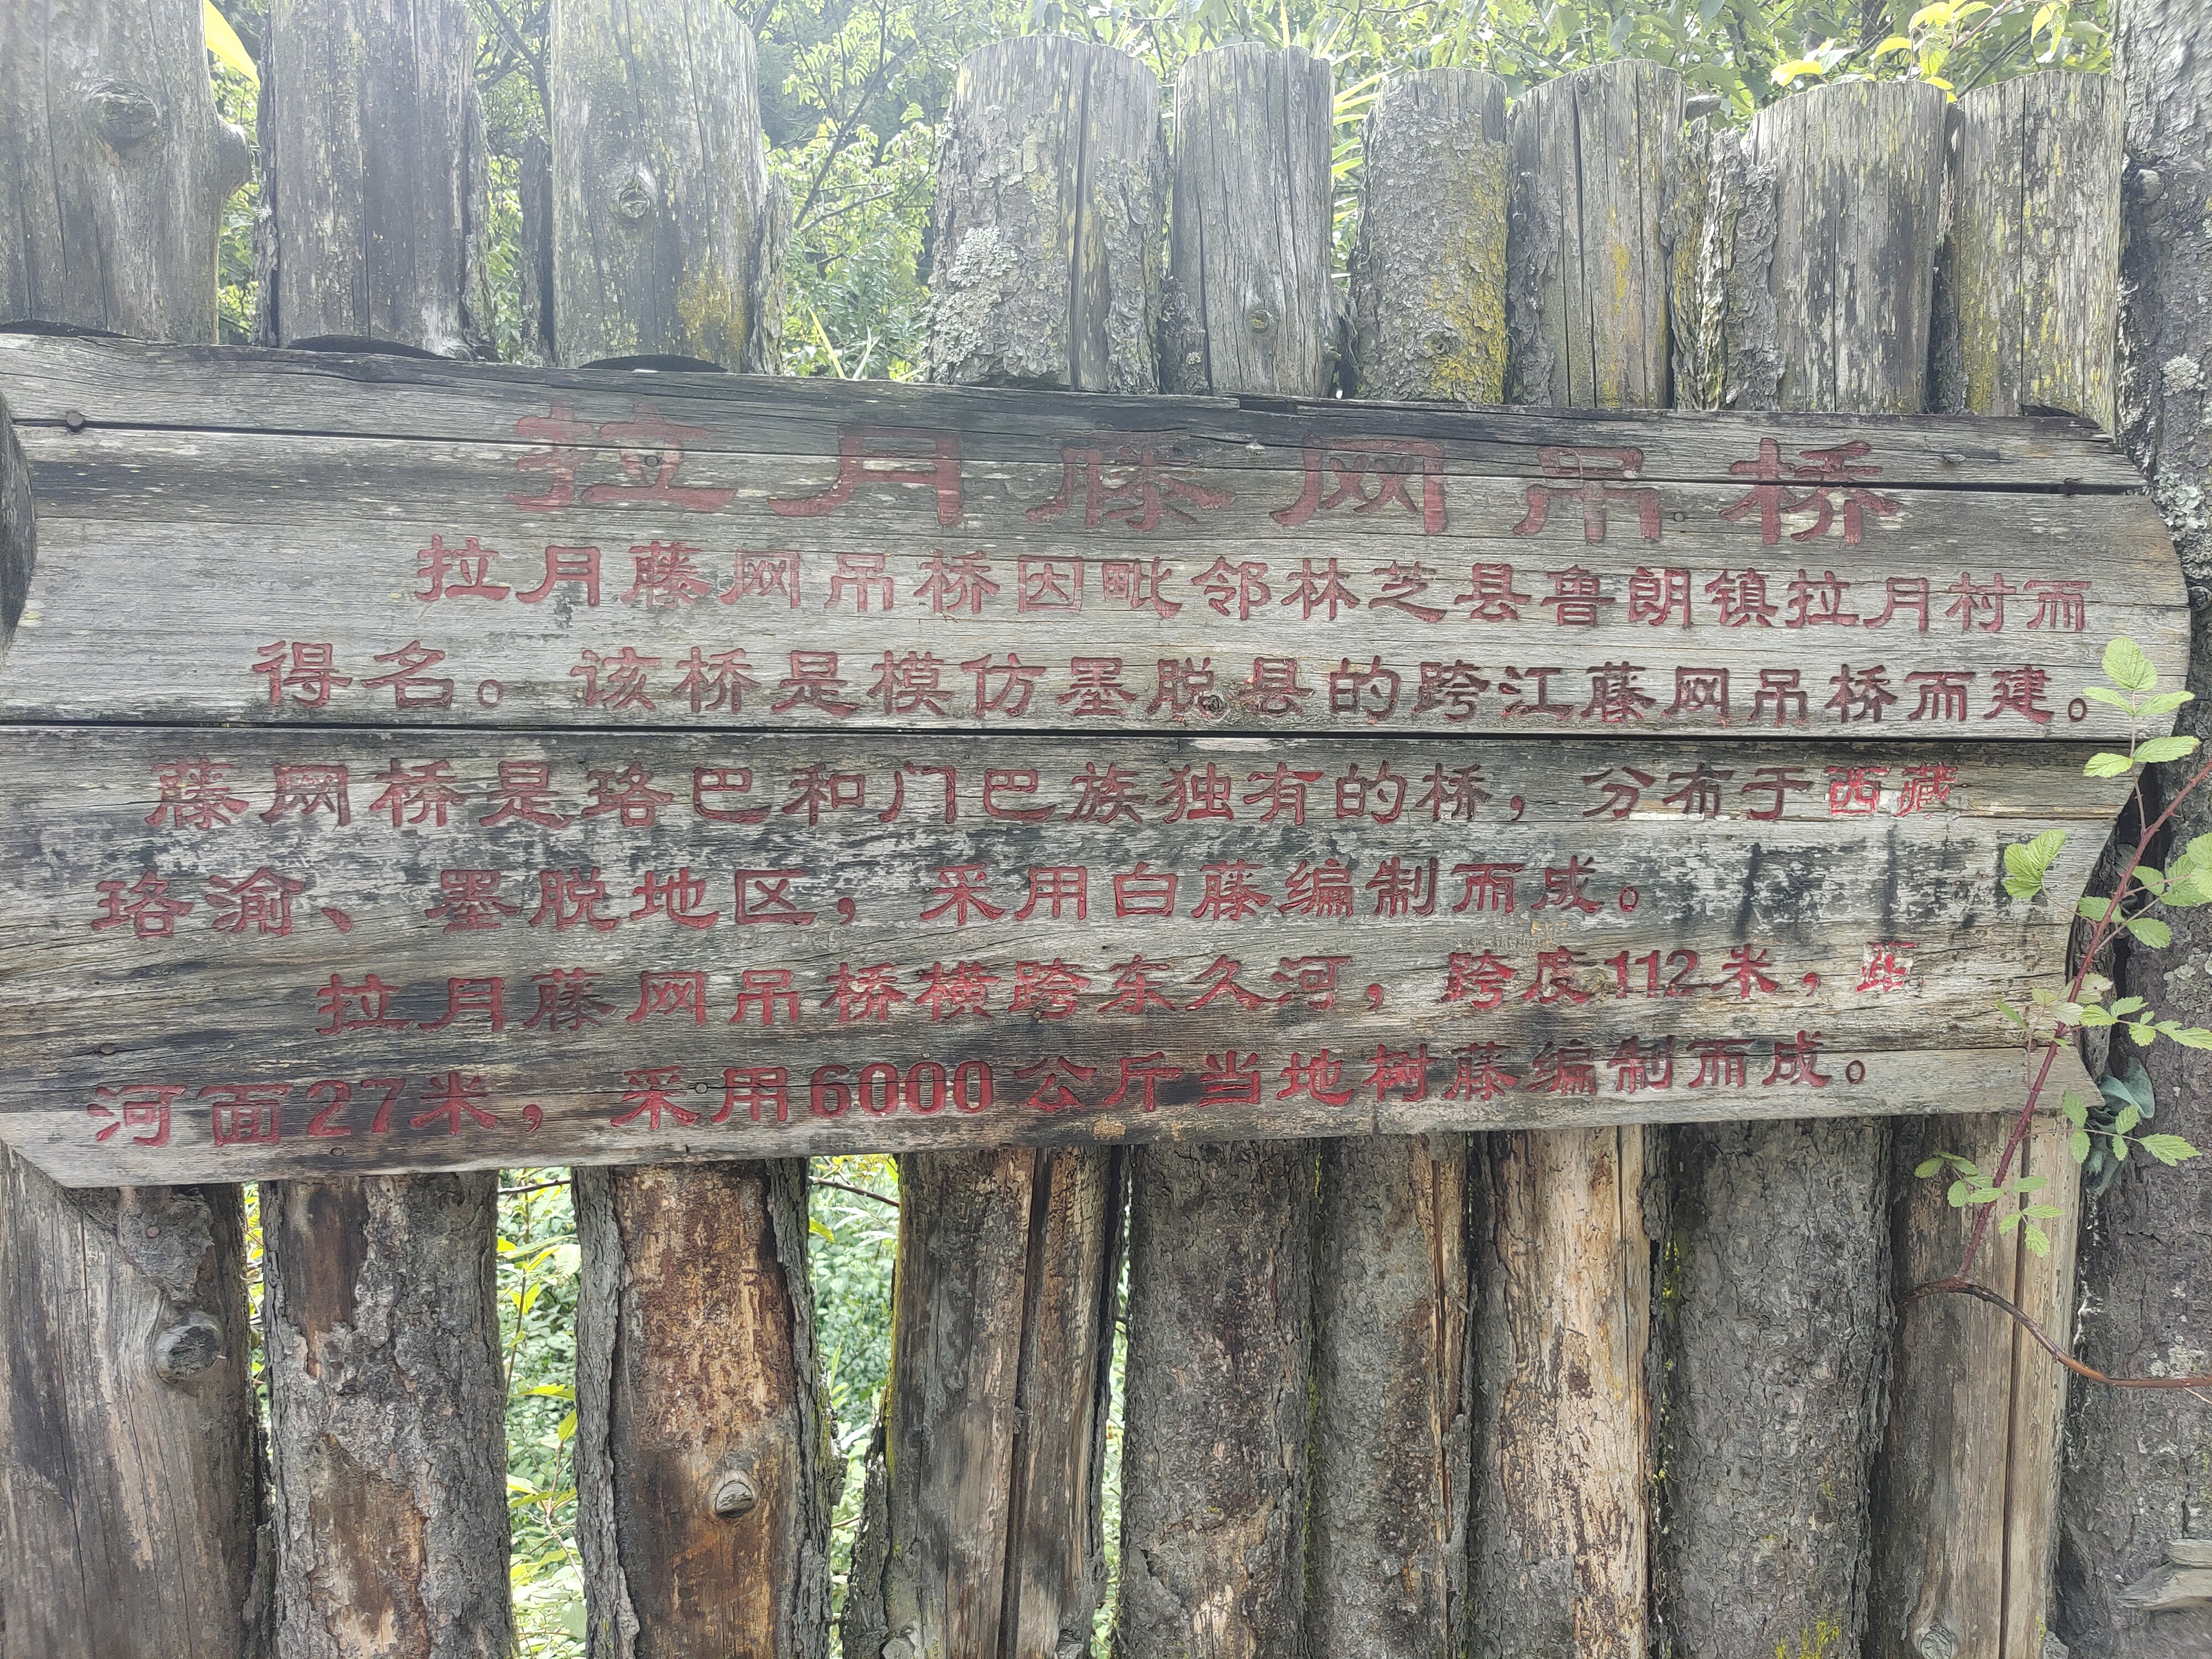 拉月藤网吊桥
拉月藤网吊桥因毗邻林芝县鲁朗镇拉月村而
得名。该桥是模仿墨脱县的跨江藤网吊桥而建。
藤网桥是珞巴和门巴族独有的桥，分布于西藏
珞渝、墨脱地区，采用白藤编制而成。
拉月藤网吊桥横跨东久河，跨度112米，距
河面27米，采用6000公斤当地树藤编制而成。